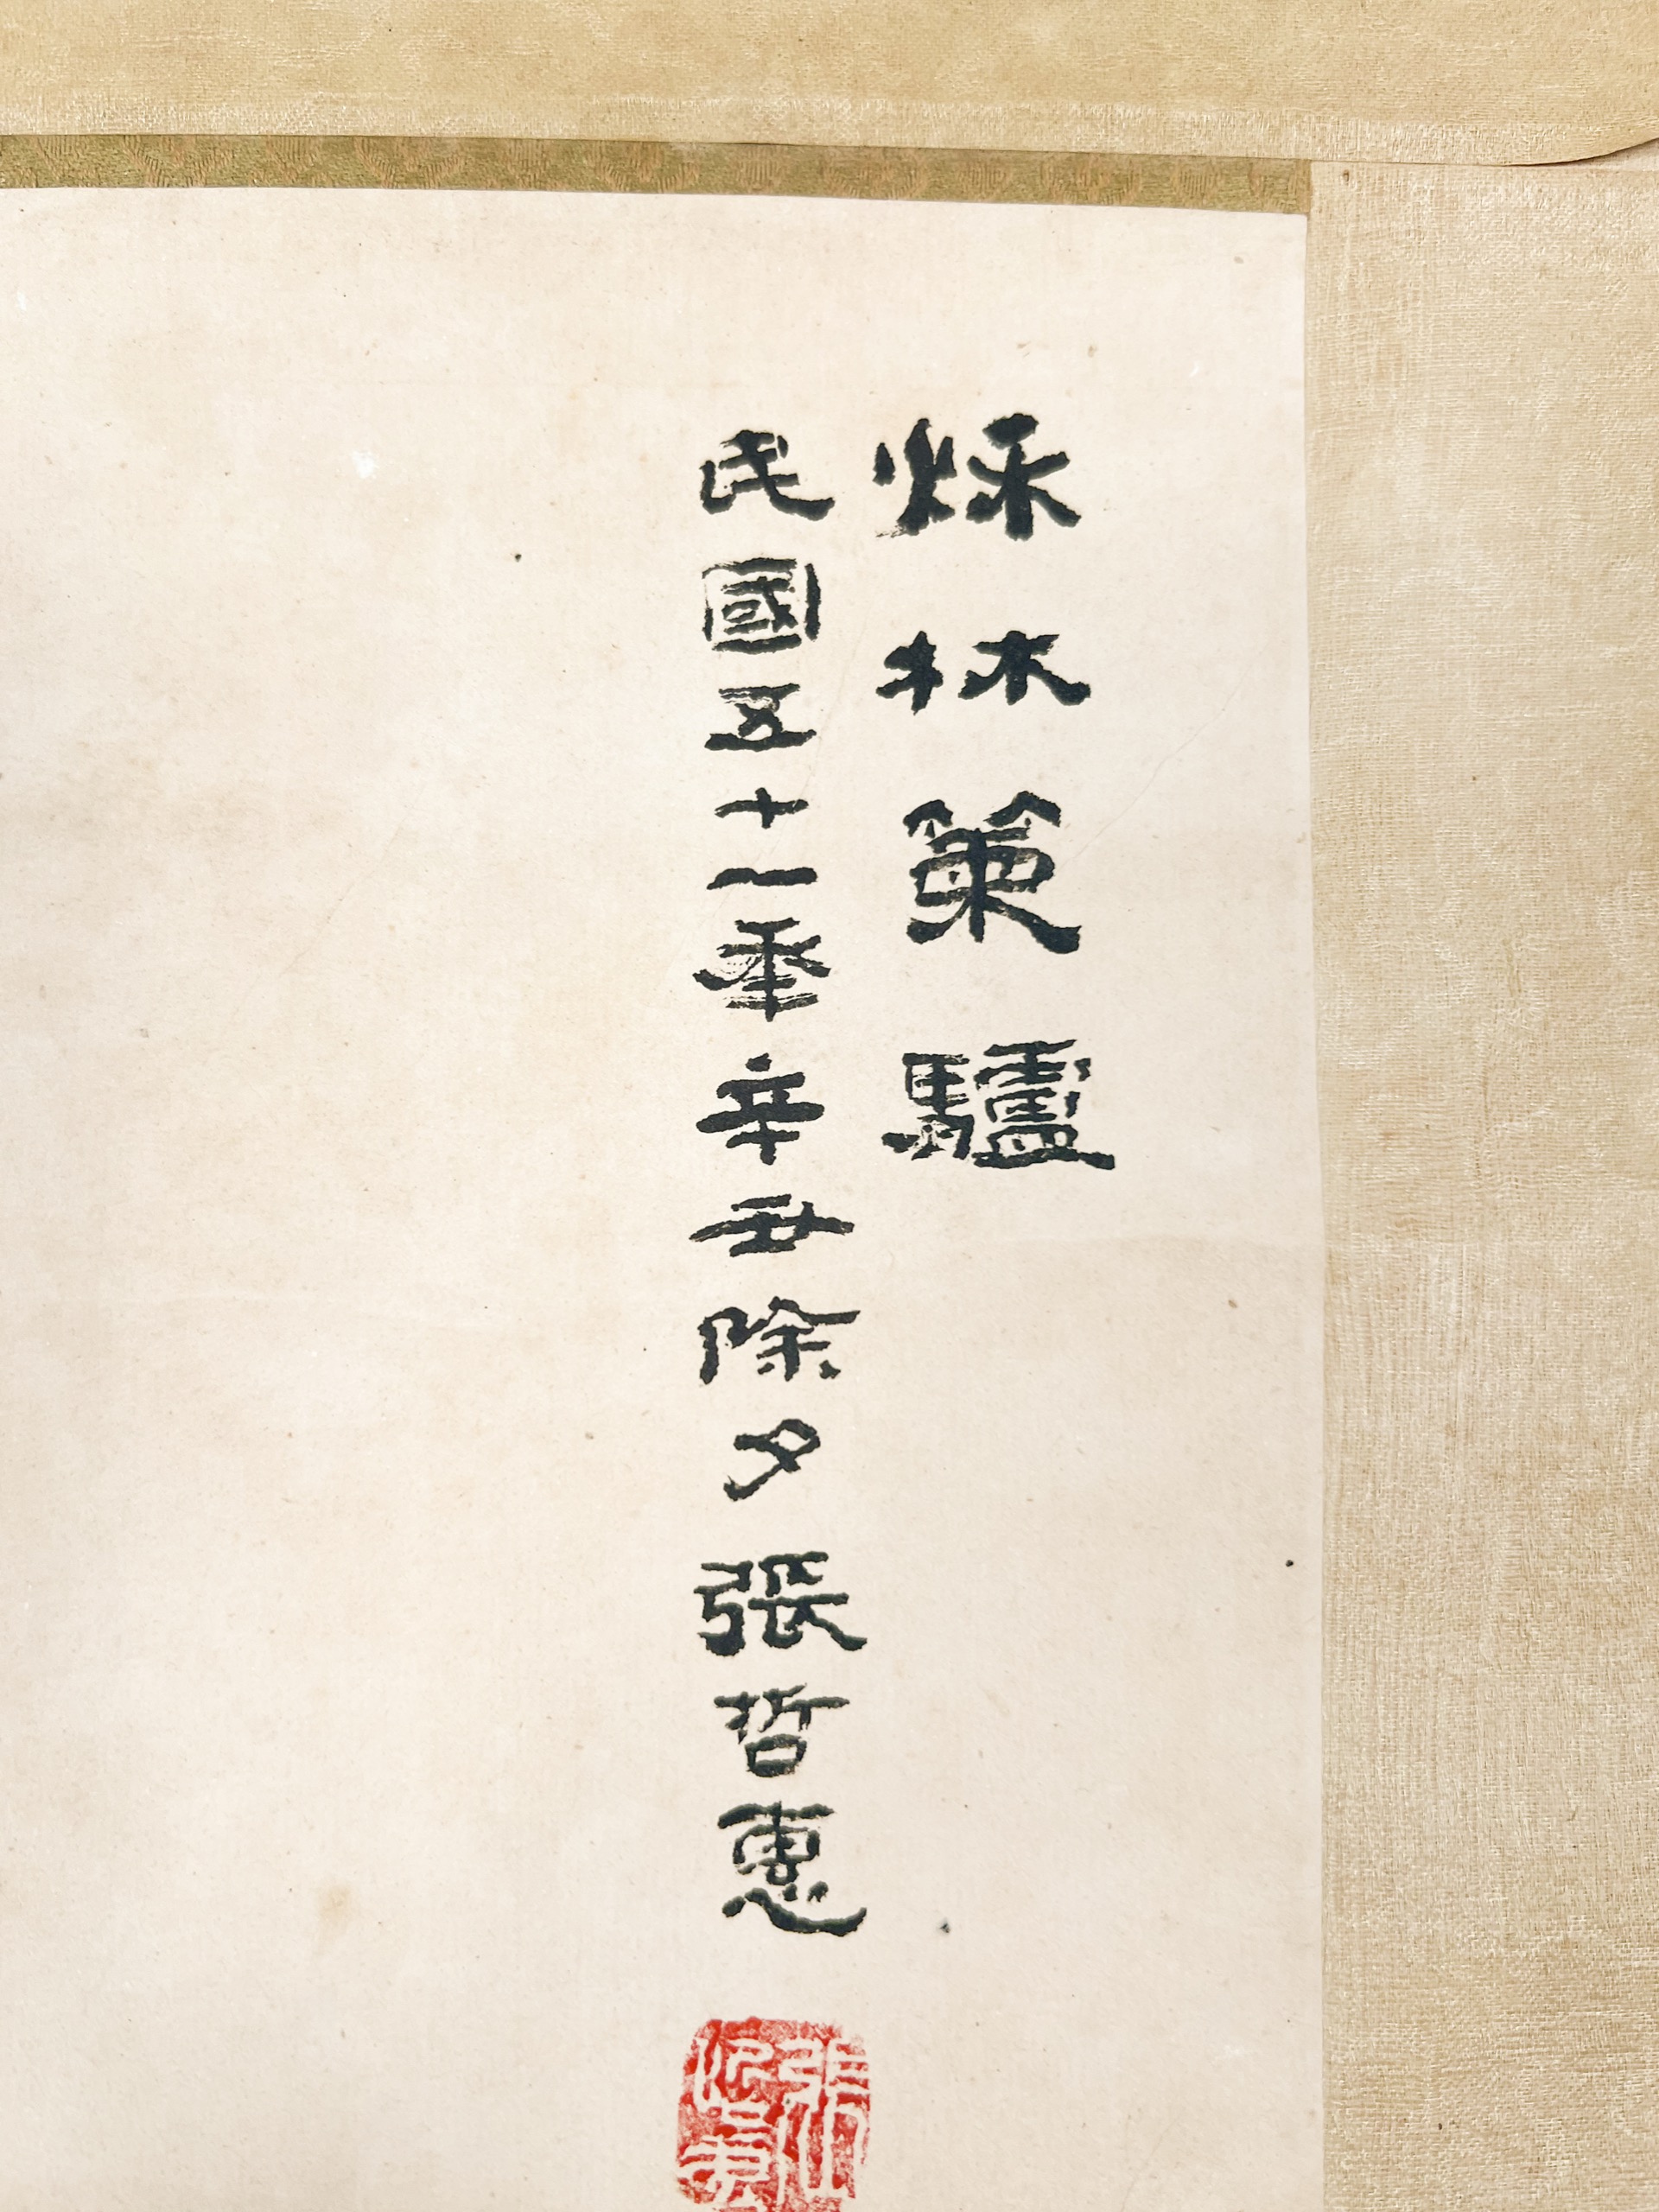 烁林策驢
民國五十一年辛丑除夕張哲惠